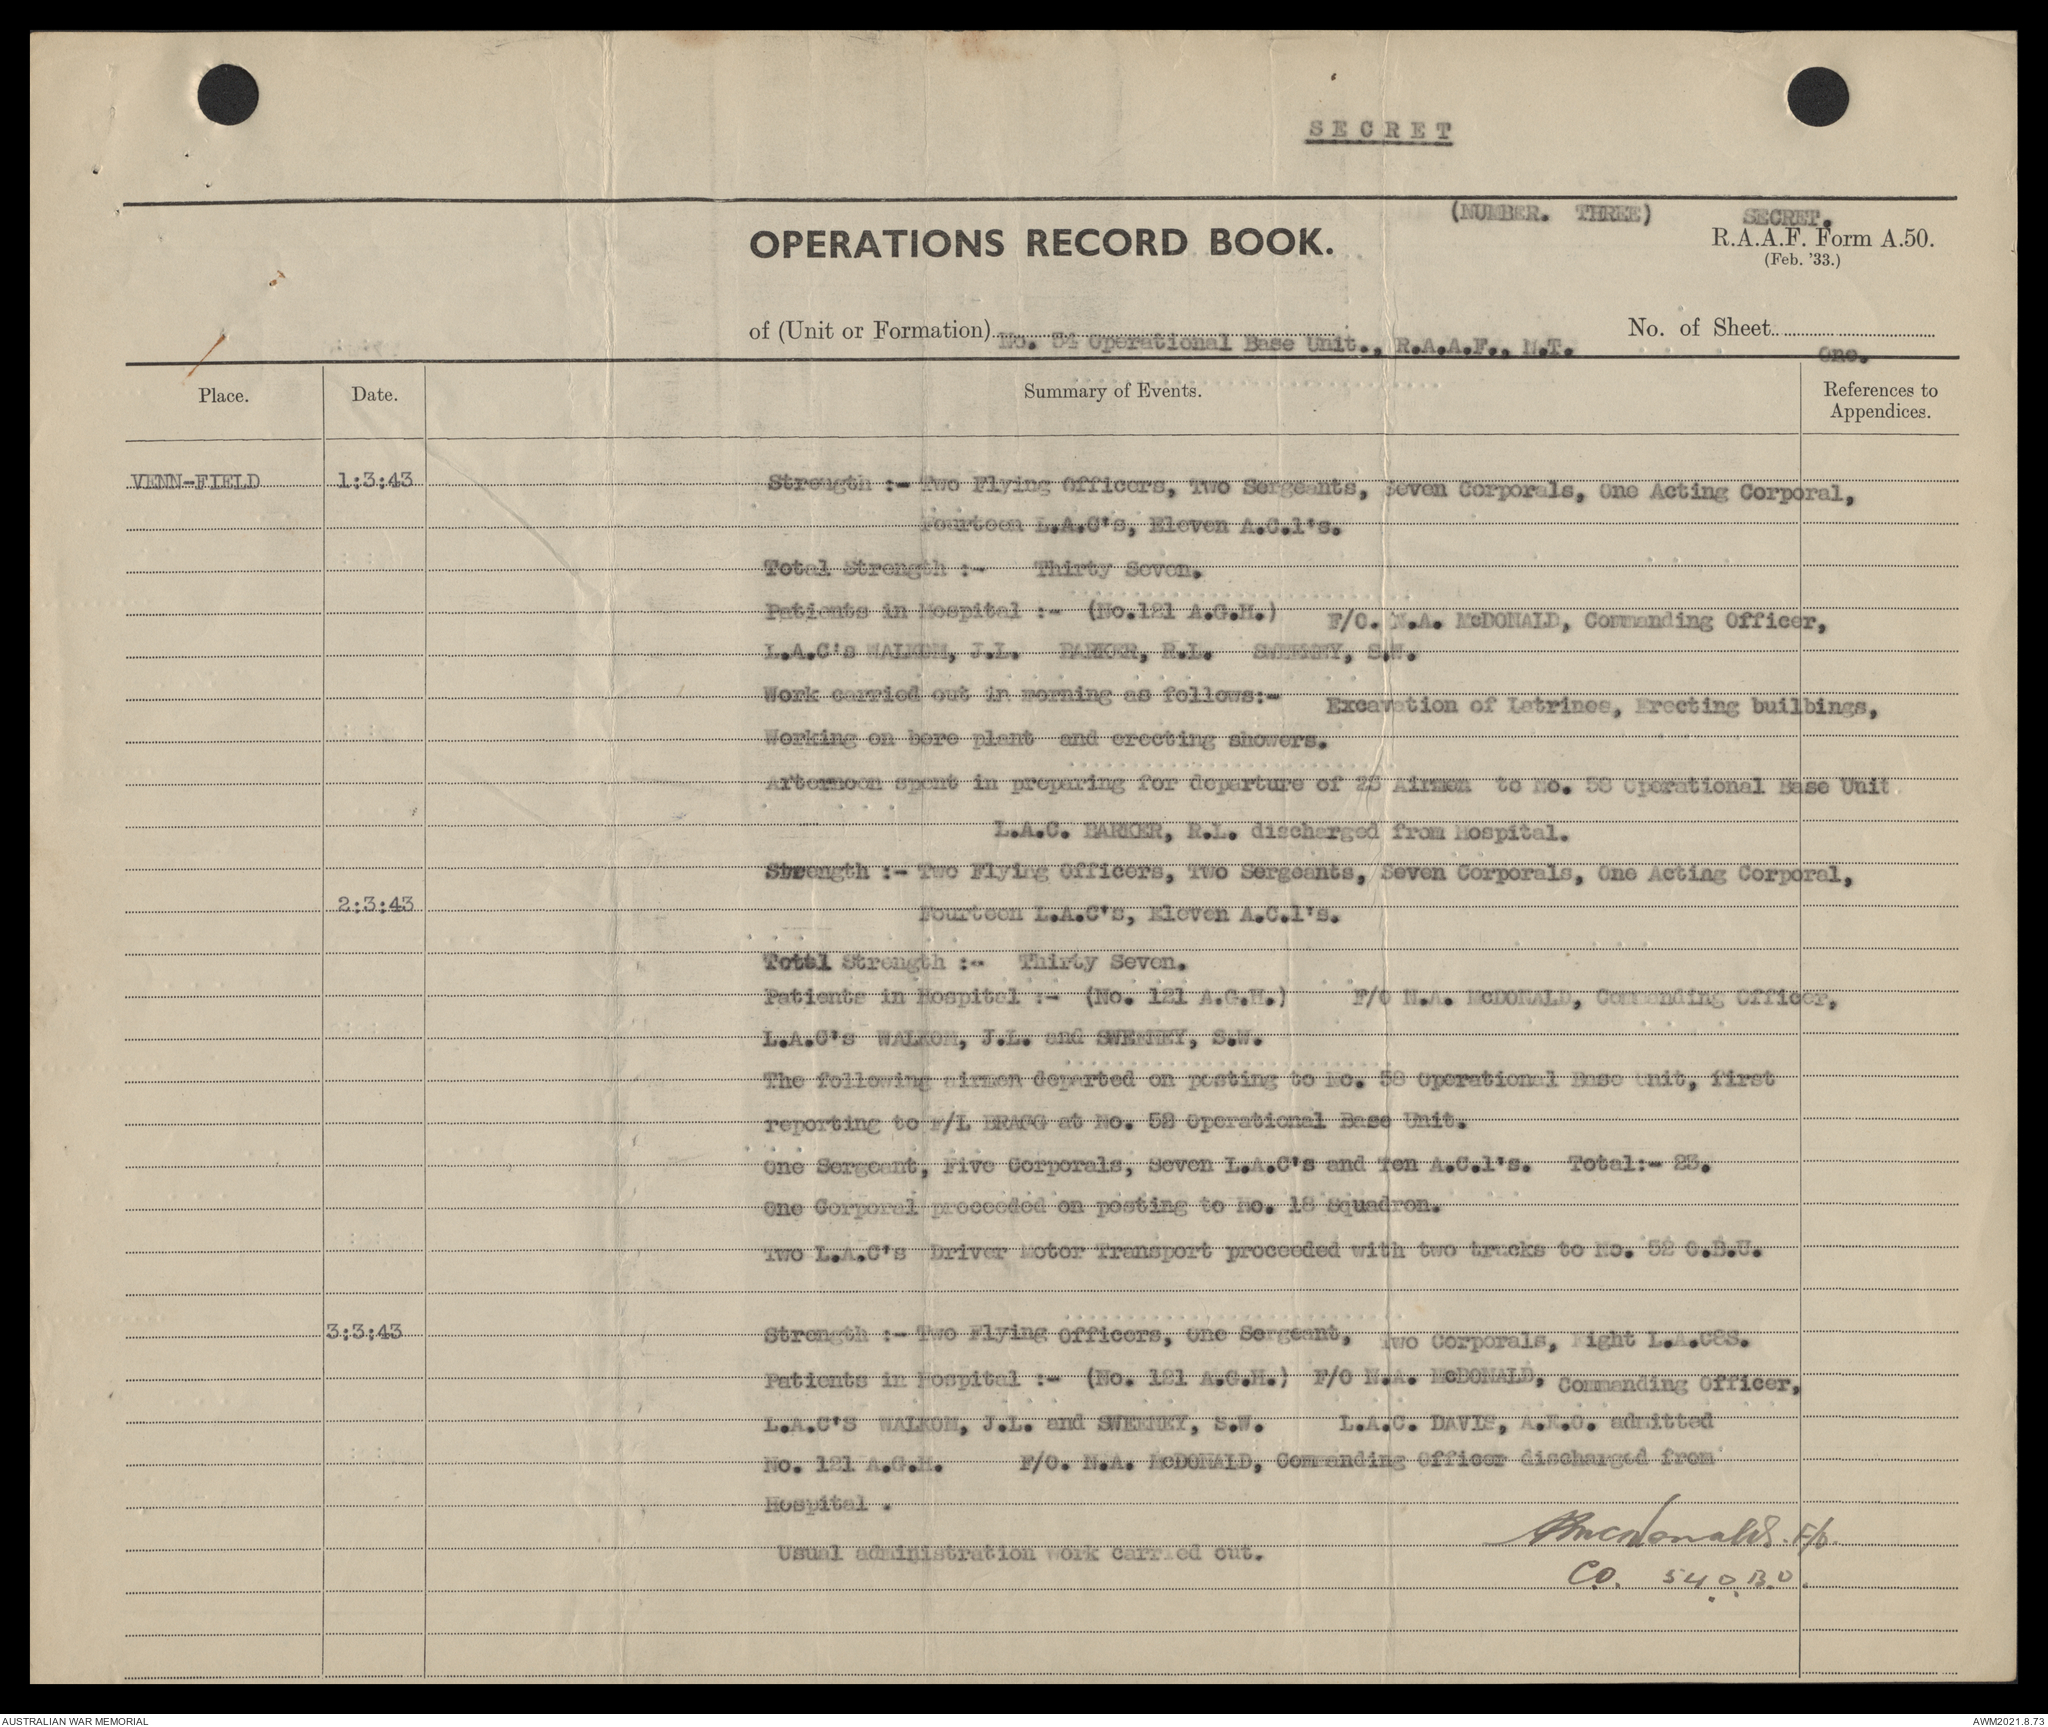 SECRET
(NUMBER. THREE) SECRET.
OPERATIONS RECORD BOOK. R.A.A.F. Form A.50.
(Feb. '33.)
of (Unit or Formation) No. 54 Operational Base Unit., R.A.A.F., N.T. No. of Sheet One.
Place. Date. Summary of Events. References to Appendices.
VENN-FIELD 1:3:43 Strength :- Two Flying Officers, Two Sergeants, Seven Corporals, One Acting Corporal,
Fourteen L.A.C's, Eleven A.C.1's.
Total Strength :- Thirty Seven.
Patients in Hospital :- (No.121 A.G.H.) F/O. N.A. McDONALD, Commanding Officer,
L.A.C's WALKOM, J.L. BARKER, R.L. SWEENEY, S.W.
Work carried out in morning as follows:- Excavation of Latrines, Erecting builbings,
Working on bore plant and erecting showers.
Afternoon spent in preparing for departure of 23 Airmen to No. 58 Operational Base Unit
L.A.C. BARKER, R.L. discharged from Hospital.
Strength :- Two Flying Officers, Two Sergeants, Seven Corporals, One Acting Corporal,
2:3:43 Fourteen L.A.C's, Eleven A.C.1's.
Total Strength :- Thirty Seven.
Patients in Hospital :- (No. 121 A.G.H.) F/O N.A. McDONALD, Commanding Officer,
L.A.C's WALKOM, J.L. and SWEENEY, S.W.
The following airmen departed on posting to No. 58 Operational Base Unit, first
reporting to F/L BRAGG at No. 52 Operational Base Unit.
One Sergeant, Five Corporals, Seven L.A.C's and Ten A.C.1's. Total:- 23.
One Corporal proceeded on posting to No. 18 Squadron.
Two L.A.C's Driver Motor Transport proceeded with two trucks to No. 52 O.B.U.
3:3:43 Strength :- Two Flying Officers, One Sergeant, Two Corporals, Eight L.A.C&S.
Patients in Hospital :- (No. 121 A.G.H.) F/O N.A. McDONALD, Commanding Officer,
L.A.C'S WALKOM, J.L. and SWEENEY, S.W. L.A.C. DAVIS, A.K.C. admitted
No. 121 A.G.H. F/O. N.A. McDONALD, Commanding Officer discharged from
Hospital .
Usual administration work carried out.
McDonald. F/O.
CO. 54 O.B.U.
AUSTRALIAN WAR MEMORIAL AWM2021.8.73